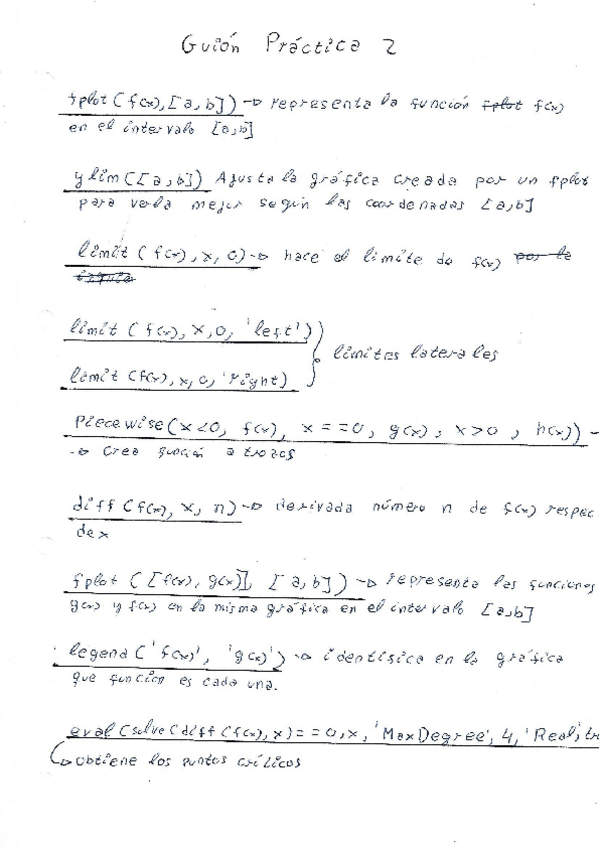 Guión Práctica 2
fplot(f(x),[a,b]) → representa la función fplot f(x)
en el intervalo [a,b]
ylim([a,b]) Ajusta la gráfica creada por un fplot
para verla mejor según las coordenadas [a,b]
limit(f(x),x,0) → hace el limite de f(x) por la
limit(f(x),x,0,'left')
limites laterales
limit(f(x),x,0,'right)
Piecewise(x<0, f(x), x==0, g(x), x>0, h(x))
→ Crea función a trozos
diff(f(x),x,n) → derivada número n de f(x) respec
de x
fplot([f(x),g(x)],[a,b]) → representa las funciones
g(x) y f(x) en la misma gráfica en el intervalo [a,b]
legend('f(x)', 'g(x)') → identifica en la gráfica
que función es cada una.
eval(solve(diff(f(x),x)==0,x,'MaxDegree',4,'Real',tr
↳ obtiene los puntos críticos